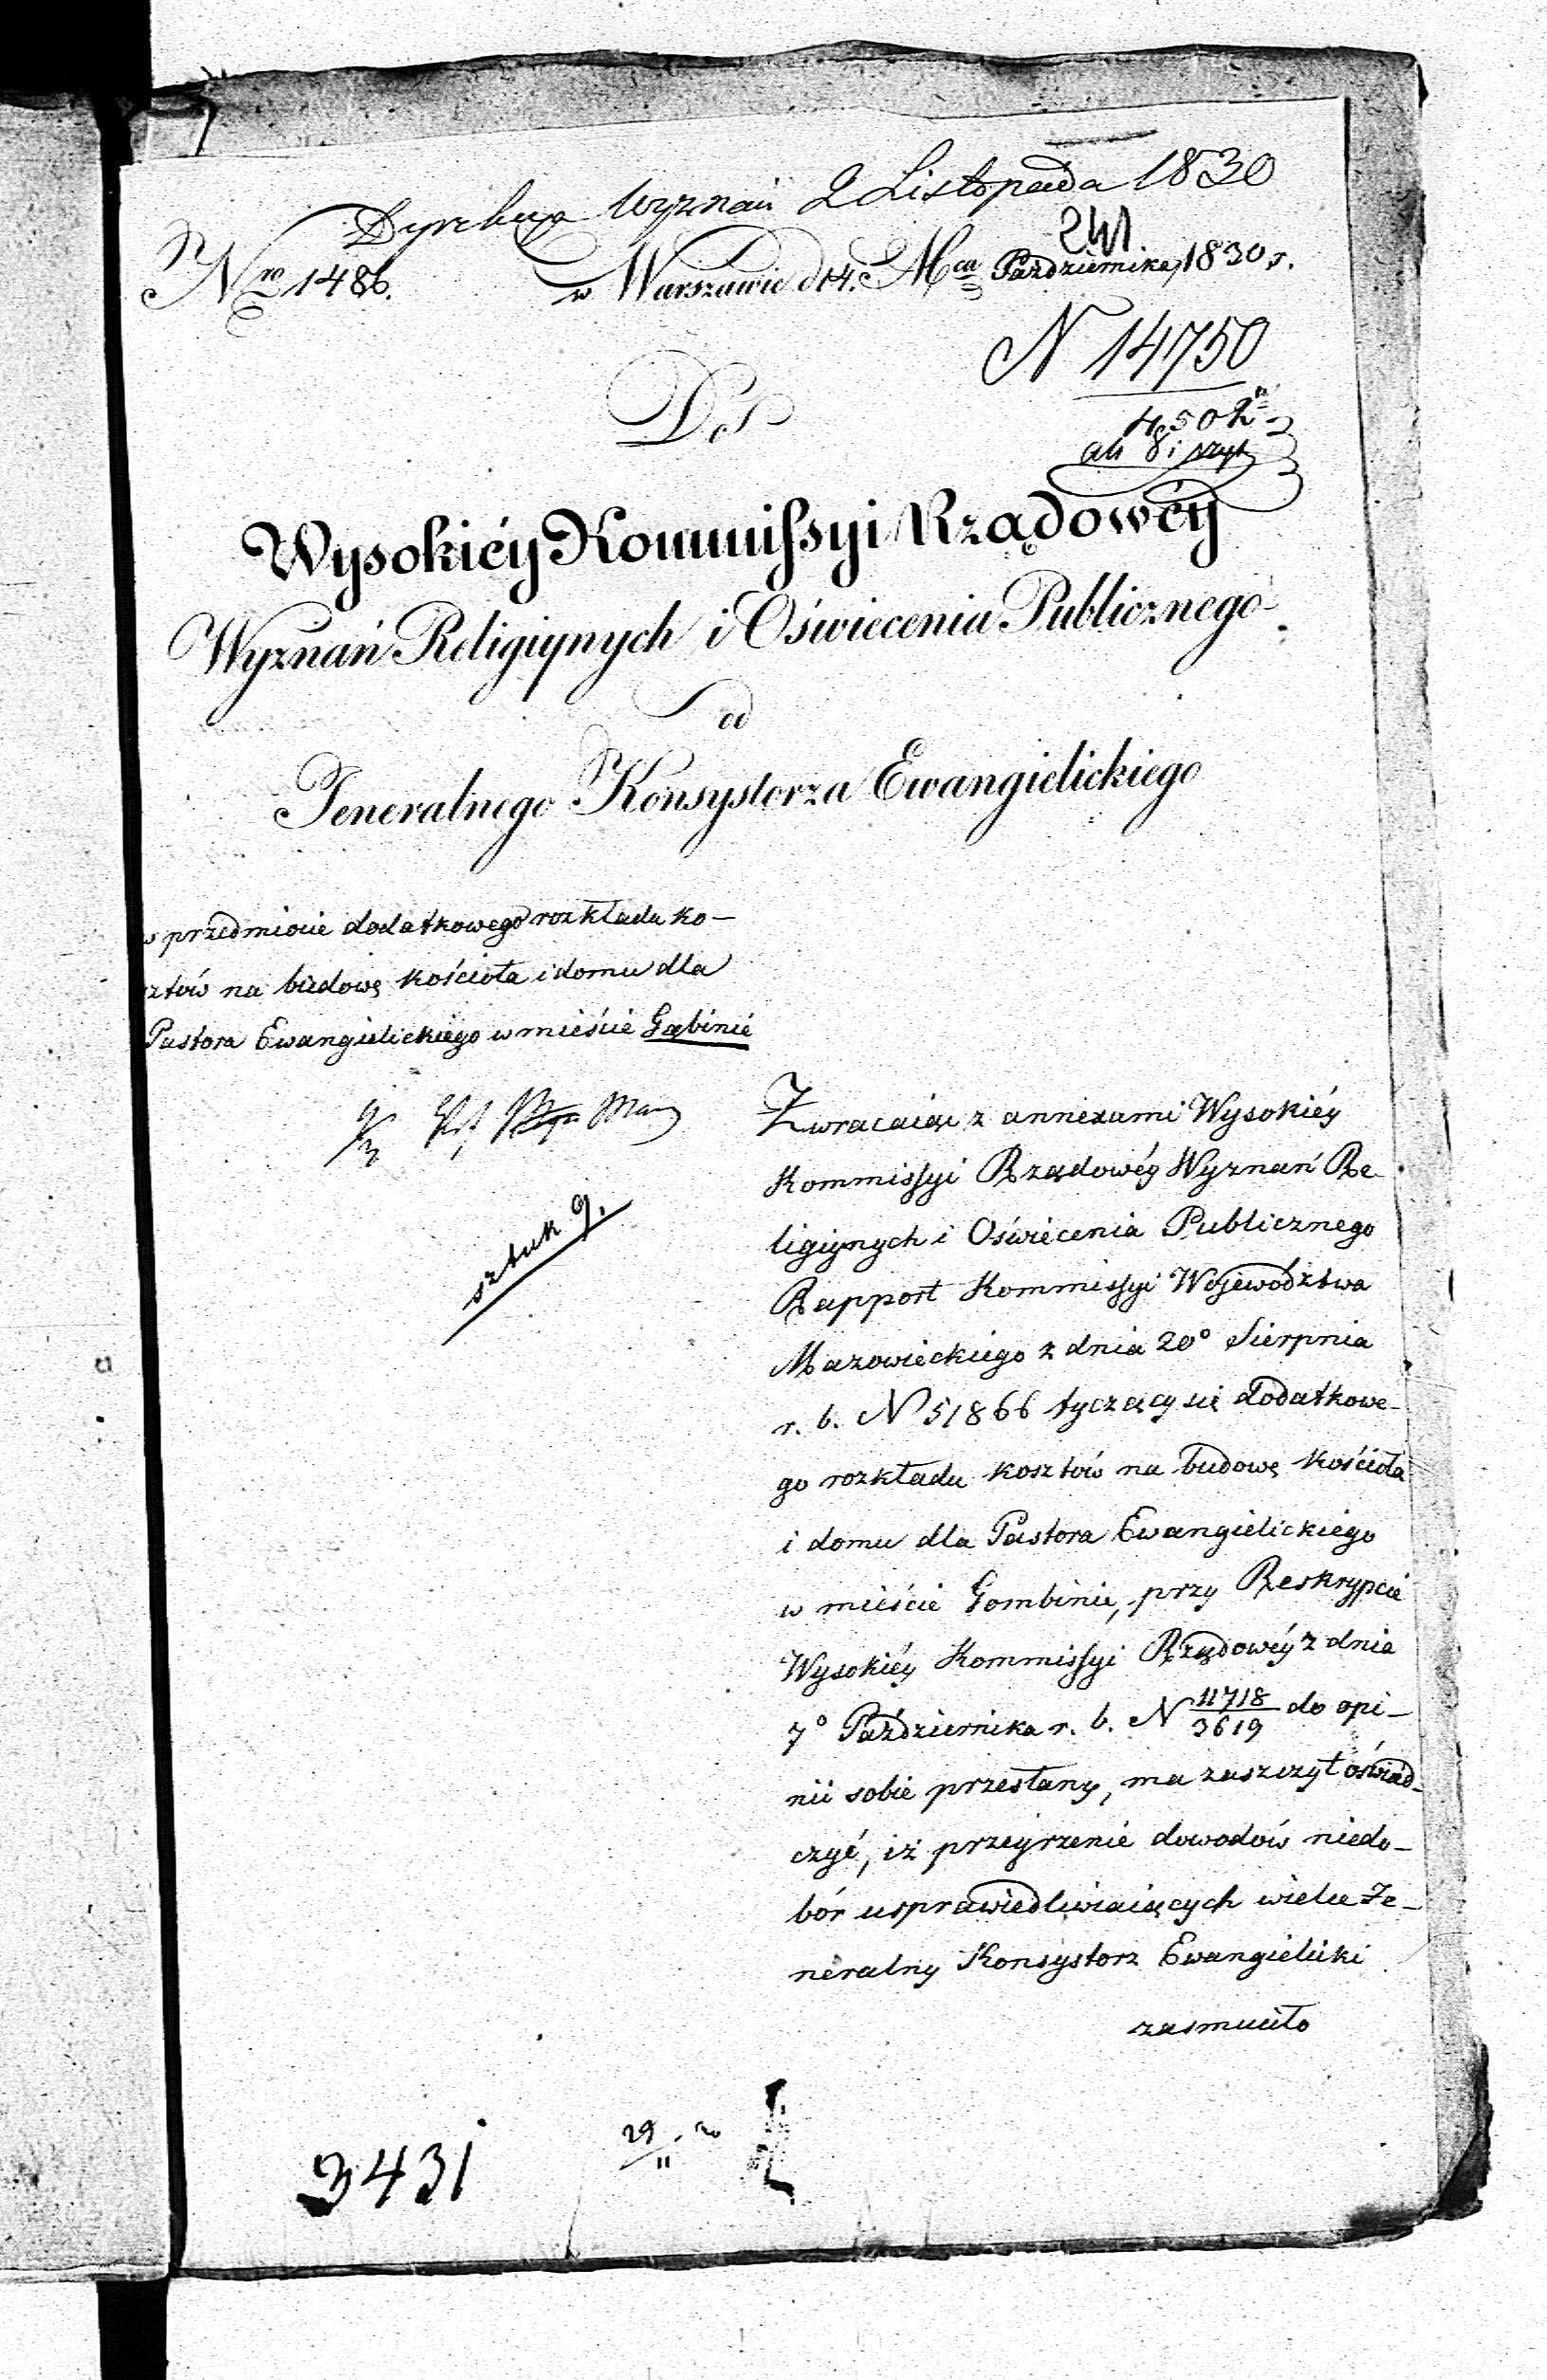 Dyrekcya Wyznań 2 Listopada 1830
241
Nro 1486. w Warszawie d 14. Mca Października 1830 r.
N 14750
Do
Wysokiéy Kommissyi Rządowéy
Wyznań Religiynych i Oświecenia Publicznego
od
Jeneralnego Konsystorza Ewangielickiego
w przedmiocie dodatkowego rozkładu ko-
sztów na budowę kościoła i domu dla
Pastora Ewangielickiego w mieście Gąbinie
sztuk 9.
Zwracaiąc z annexami Wysokiéy
Kommissyi Rządowéy Wyznań Re-
ligiynych i Oświecenia Publicznego
Rapport Kommissyi Województwa
Mazowieckiego z dnia 20o Sierpnia
r. b. N 51866 tyczący się dodatkowe-
go rozkładu kosztów na budowę kościoła
i domu dla Pastora Ewangielickiego
w mieście Gombinie, przy Reskrypcie
Wysokiéy Kommissyi Rządowéy z dnia
7o Października r. b. N 11718/3619 do opi-
nii sobie przesłany, ma zaszczyt oświad-
czyć, iż przeyrzenie dowodów niedo-
bór usprawiedliwiaiących wielce Je-
neralny Konsystorz Ewangielicki
zasmuciło
3431
29/11